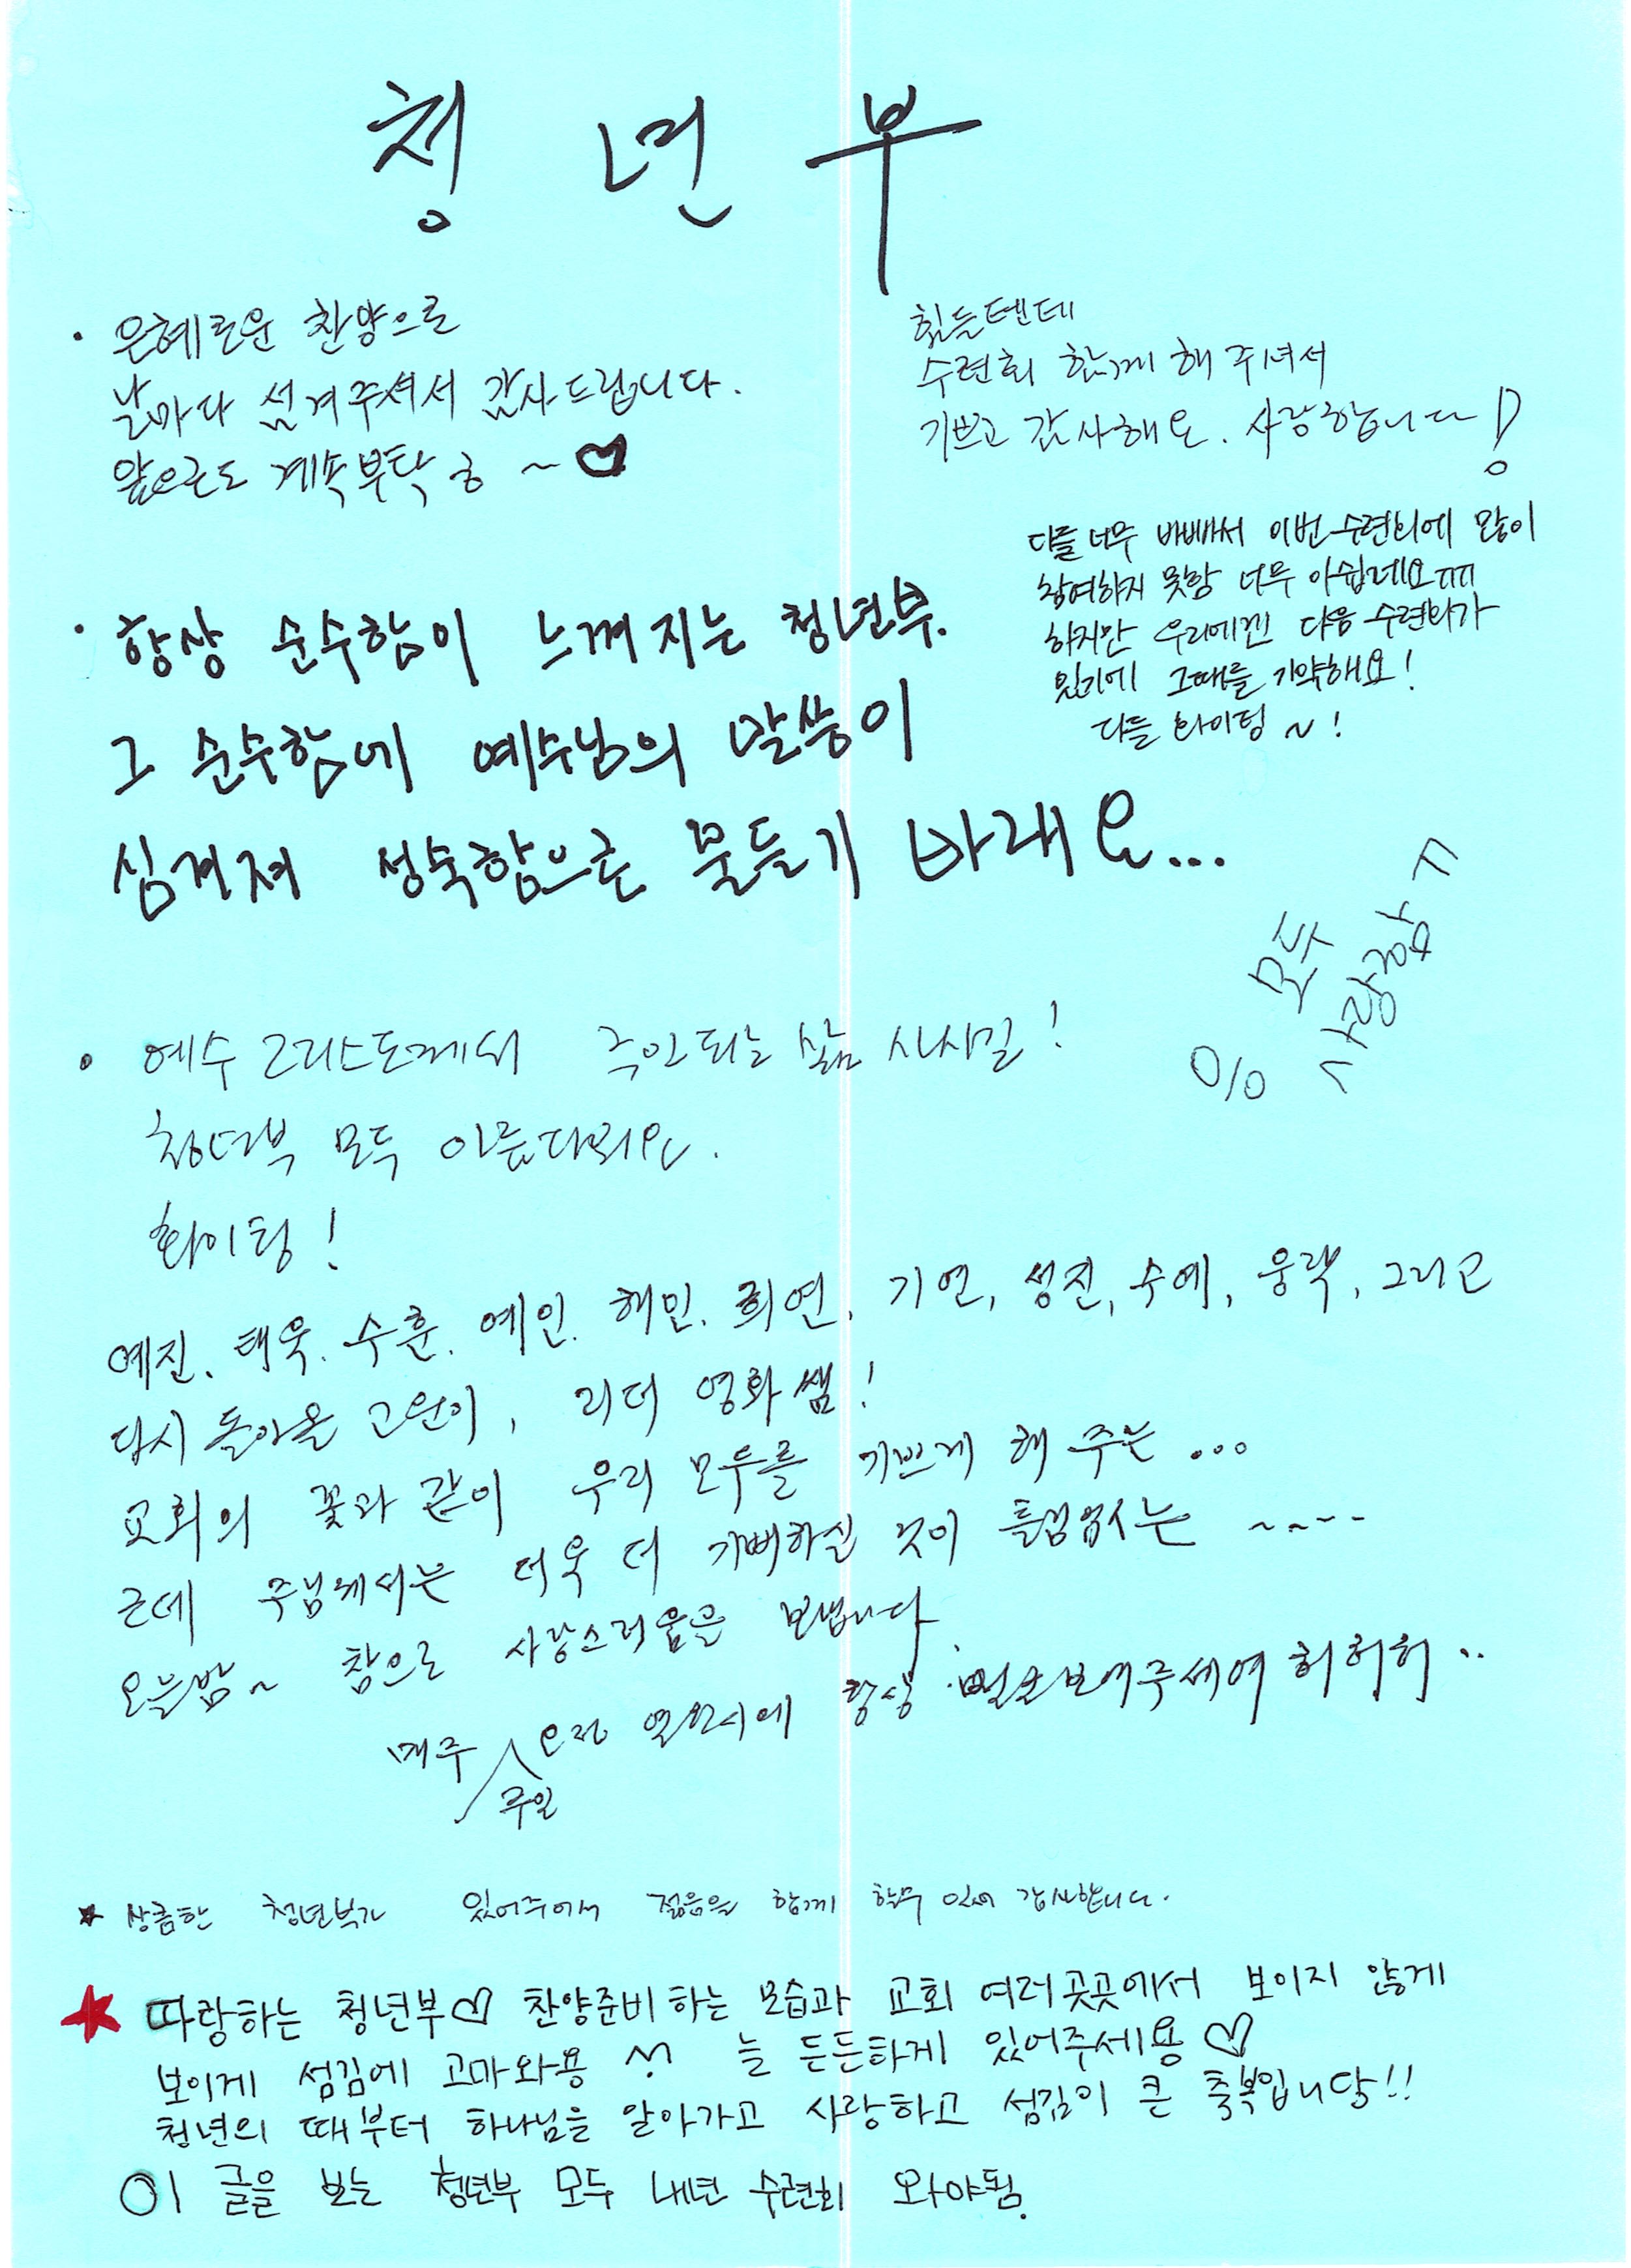 청년부
· 은혜로운 찬양으로
날마다 섬겨주셔서 감사드립니다.
앞으로도 계속부탁 ㅎ ~ ♥
힘들텐데
수련회 함께 해 주셔서
기쁘고 감사해요. 사랑합니다!
다들 너무 바빠서 이번 수련회에 많이
참여하지 못항 너무 아쉽네요ㅠㅠ
하지만 우리에겐 다음 수련회가
있기에 그때를 기약해요!
다들 화이팅 ~!
· 항상 순수함이 느껴지는 청년부.
그 순수함에 예수님의 말씀이
심겨져 성숙함으로 물들기 바래요...
모두
사랑합시
· 예수 그리스도께서 주인되는 삶 사시길!
청년부 모두 아름다워요.
화이팅!
예진. 태욱. 수훈. 예인. 해민. 희연. 기연, 성진, 수예, 웅락, 그리고
다시 돌아올 고원이, 리더 영화쌤!
교회의 꽃과 같이 우리 모두를 기쁘게 해 주는 ...
근데 주님께서는 더욱 더 기뻐하실 것이 틀림없시는 ~~--
오늘밤~ 참으로 사랑스러움을 보냅니다.
매주 주일 오전 열한시에 항상 보여주세여 허허허 ..
★ 상큼한 청년부가 있어주어서 젊음을 함께 할 수 있어 감사합니다.
★ 따랑하는 청년부♡ 찬양준비하는 모습과 교회 여러곳곳에서 보이지 않게
보이게 섬김에 고마와용 ^^ 늘 든든하게 있어주세용♡
청년의 때부터 하나님을 알아가고 사랑하고 섬김이 큰 축복입니당!!
이 글을 보는 청년부 모두 내년 수련회 와야됨.